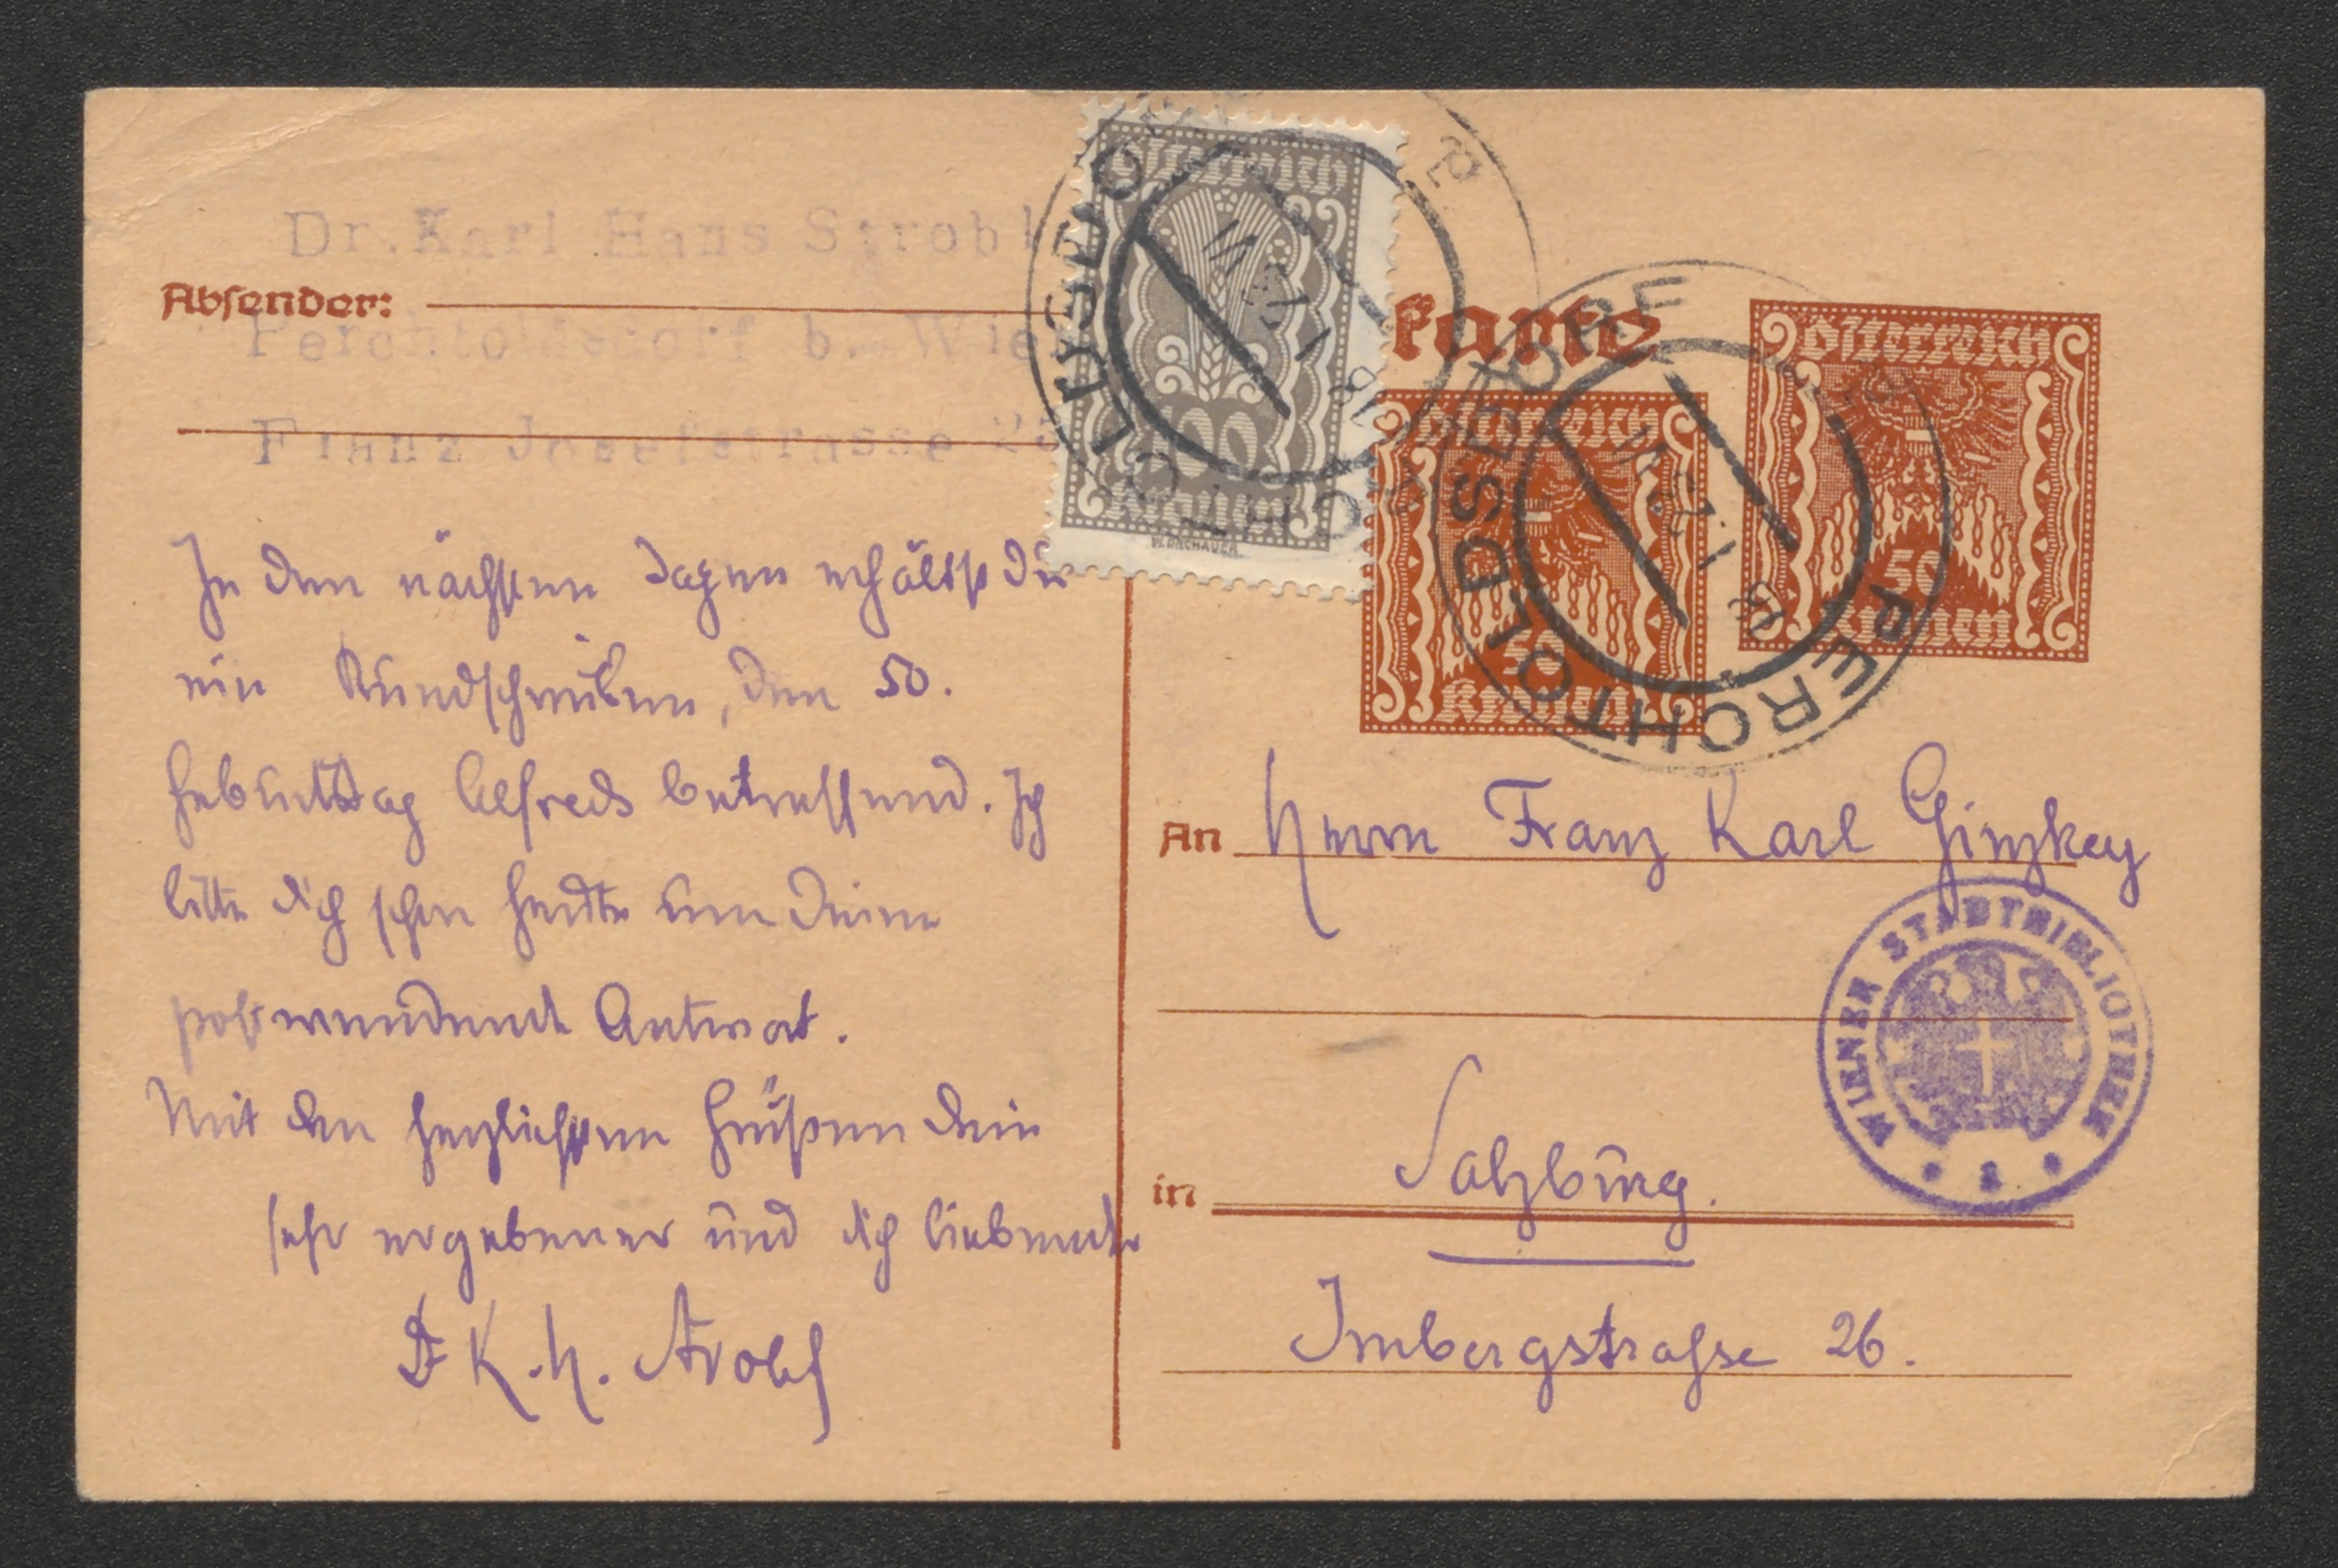 Dr. Karl Hans Strobl
Absender:
Perchtoldsdorf b. Wie
Franz Josefstrasse
In den nächsten Tagen erhältst Du
ein Rundschreiben, den 50.
Geburtstag Alfreds betreffend. Ich
bitte dich schon heute um Deine
postwendende Antwort.
Mit den herzlichsten Grüßen Dein
sehr ergebener und dich liebender
Dr K. H. Strobl
Österreich
100
Kronen
W. DACHAUER
karte
Österreich
50
Kronen
Österreich
50
Kronen
PERCHTOLDSDORF
PERCHTOLDSDORF
An Herrn Franz Karl Ginzkey
WIENER STADTBIBLIOTHEK
in Salzburg.
Imbergstrasse 26.